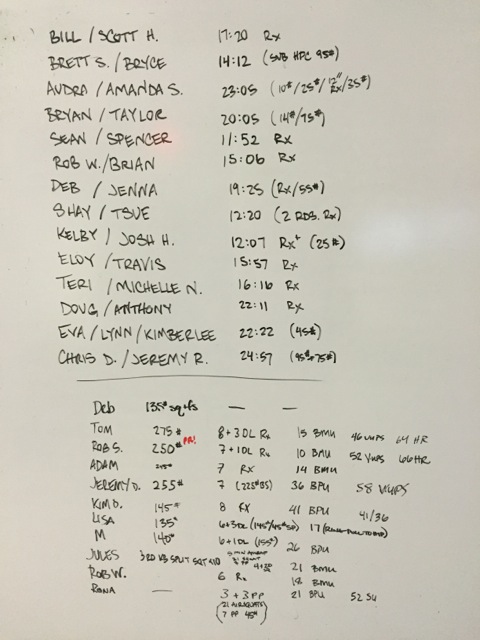 BILL / SCOTT H. 17:20 Rx
BRETT S. / BRYCE 14:12 (SUB HPC 95#)
AUDRA / AMANDA S. 23:05 (10#/25#/12" Rx/35#)
BRYAN / TAYLOR 20:05 (14#/75#)
SEAN / SPENCER 11:52 Rx
ROB W. / BRIAN 15:06 Rx
DEB / JENNA 19:25 (Rx/55#)
SHAY / TSUE 12:20 (2 RDS. Rx)
KELBY / JOSH H. 12:07 Rx+ (25#)
ELOY / TRAVIS 15:57 Rx
TERI / MICHELLE N. 16:16 Rx
DOUG / ANTHONY 22:11 Rx
EVA / LYNN / KIMBERLEE 22:22 (45#)
CHRIS D. / JEREMY R. 24:57 (95#+75#)
Deb 135# sqts — —
TOM 275# 8+3DL Rx 15 BMU 46 64 HR
ROB S. 250# PR! 7+1DL Rx 10 BMU 52 66 HR
ADAM 7 RX 14 BMU
JEREMY D. 255# 7 (225#BS) 36 BPU 58
KIM D. 145# 8 RX 41 BPU 41/36
LISA 135# 6+3DL (145#/95# 17
M 140# 6+1DL (155#) 26 BPU
JULES SPLIT SQT 21 BMU
ROB W. 6 Rx 18 BMU
RONA — 3+3PP 21 BPU 52 SU
7 PP 45#